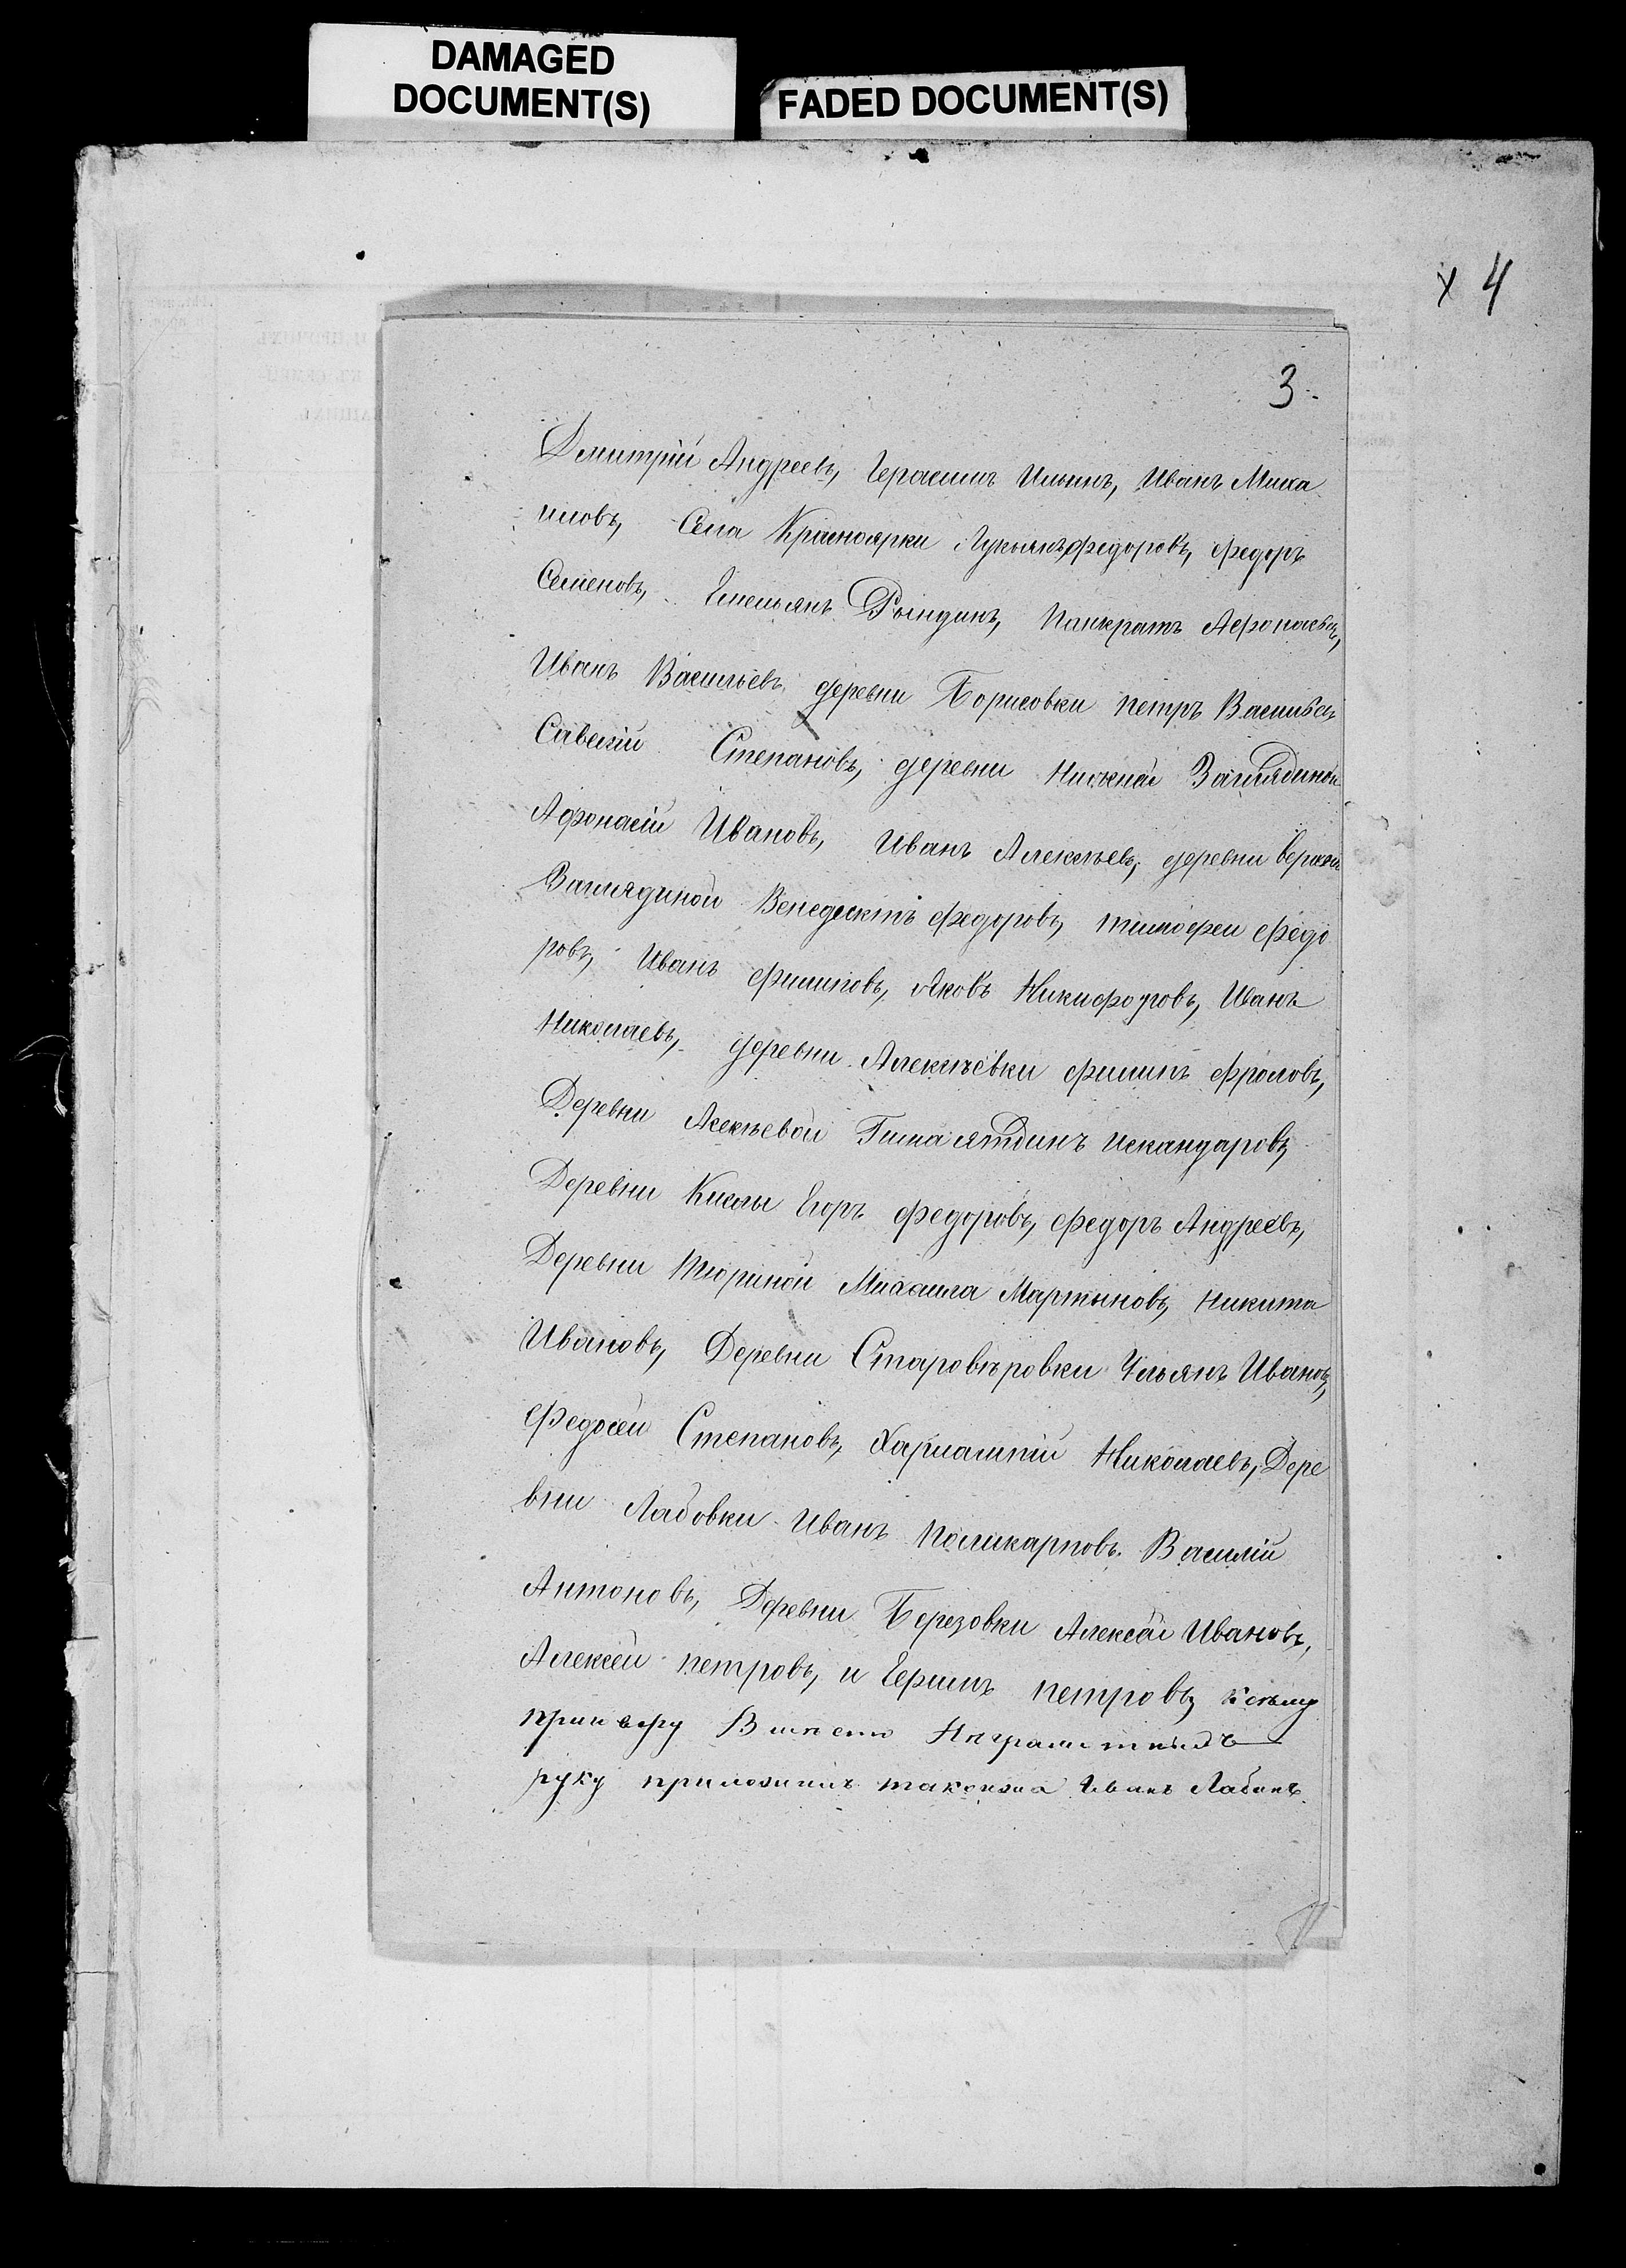 DAMAGED
DOCUMENT(S)
FADED DOCUMENT(S)
х 4
3.
Дмитрій Андреевъ, Герасимъ Ильинъ, Иванъ Миха
иловъ, Села Красноярки Лукьянъ Федоровъ, Федоръ
Семеновъ, Емельянъ Рындинъ, Панкратъ Афонасьевъ,
Иванъ Васильевъ, деревни Борисовки Петръ Васильевъ
Савелій Степановъ, деревни Нижней Заглядиной
Афонасій Ивановъ, Иванъ Алексѣевъ, деревни верхней
Заглядиной Венедиктъ Федоровъ, Тимофеи Федо
ровъ, Иванъ Филиповъ, Яковъ Никифоровъ, Иванъ
Николаевъ, деревни Алексѣевки Филипъ Фроловъ,
Деревни Асекѣевой Гималятдинъ Искандаровъ
Деревни Кислы Егоръ Федоровъ, Федоръ Андреевъ,
Деревни Тюриной Михаила Мартыновъ, Никита
Ивановъ, Деревни Старовѣровки Ульянъ Ивановъ,
Федосей Степановъ, Харлампій Николаевъ, Дере
вни Лабовки Иванъ Поликарповъ. Василій
Антоновъ, Деревни Березовки Алексѣй Ивановъ,
Алексей Петровъ, и Петровъ, к сему
приговору Вместо Награмотныхъ
руку приложилъ Иванъ Лабинъ.